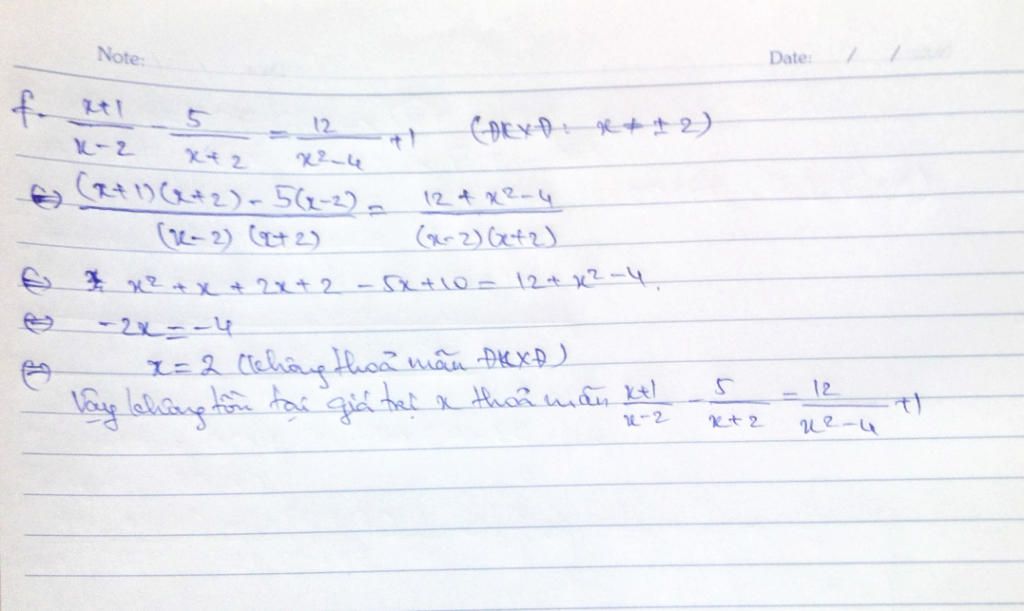 Note: Date: / /
f. x+1/x-2 - 5/x+2 = 12/x²-4 +1 (ĐKXĐ: x ≠ ±2)
⇔ (x+1)(x+2) - 5(x-2)/(x-2)(x+2) = 12 + x² - 4/(x-2)(x+2)
⇔ x² + x + 2x + 2 - 5x + 10 = 12 + x² - 4.
⇔ -2x = -4
⇔ x = 2 (không thoả mãn ĐKXĐ)
Vậy không tồn tại giá trị x thoả mãn x+1/x-2 - 5/x+2 = 12/x²-4 +1